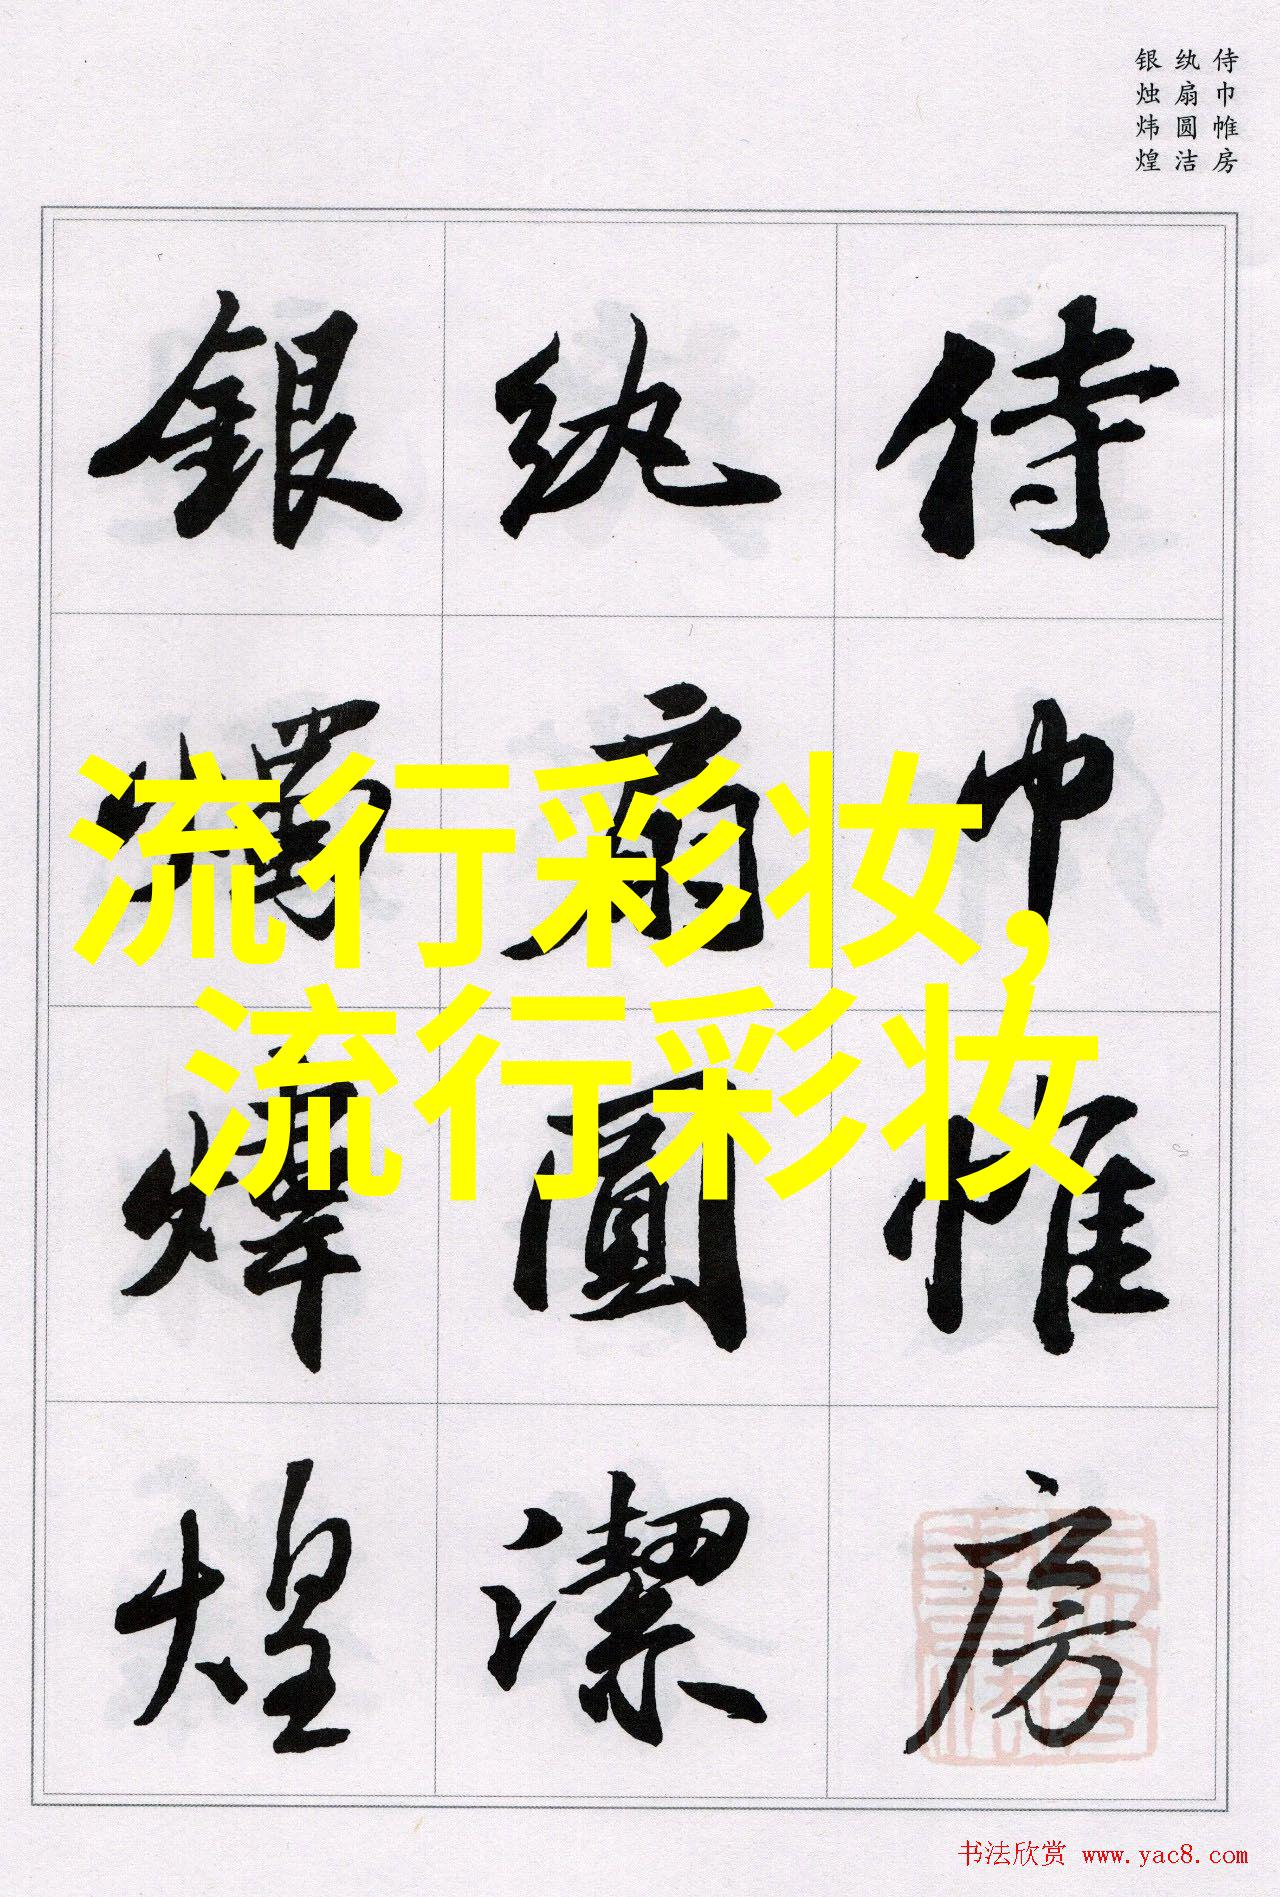 侍巾帷房
纨扇圆洁
银烛炜煌
侍巾帷房
紈扇圓潔
銀燭煒煌
流行彩妆,
流行彩妆
书法欣赏 www.yac8.com